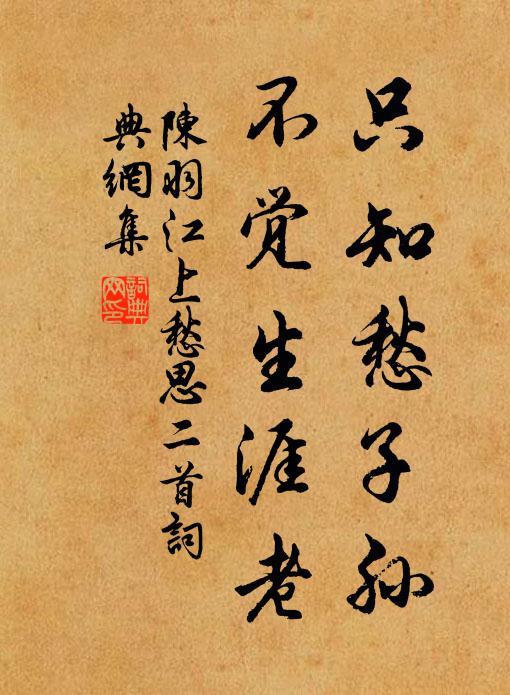 只知愁子孙
不觉生涯老
陳羽江上愁思二首詞
典網集
詞典
网印